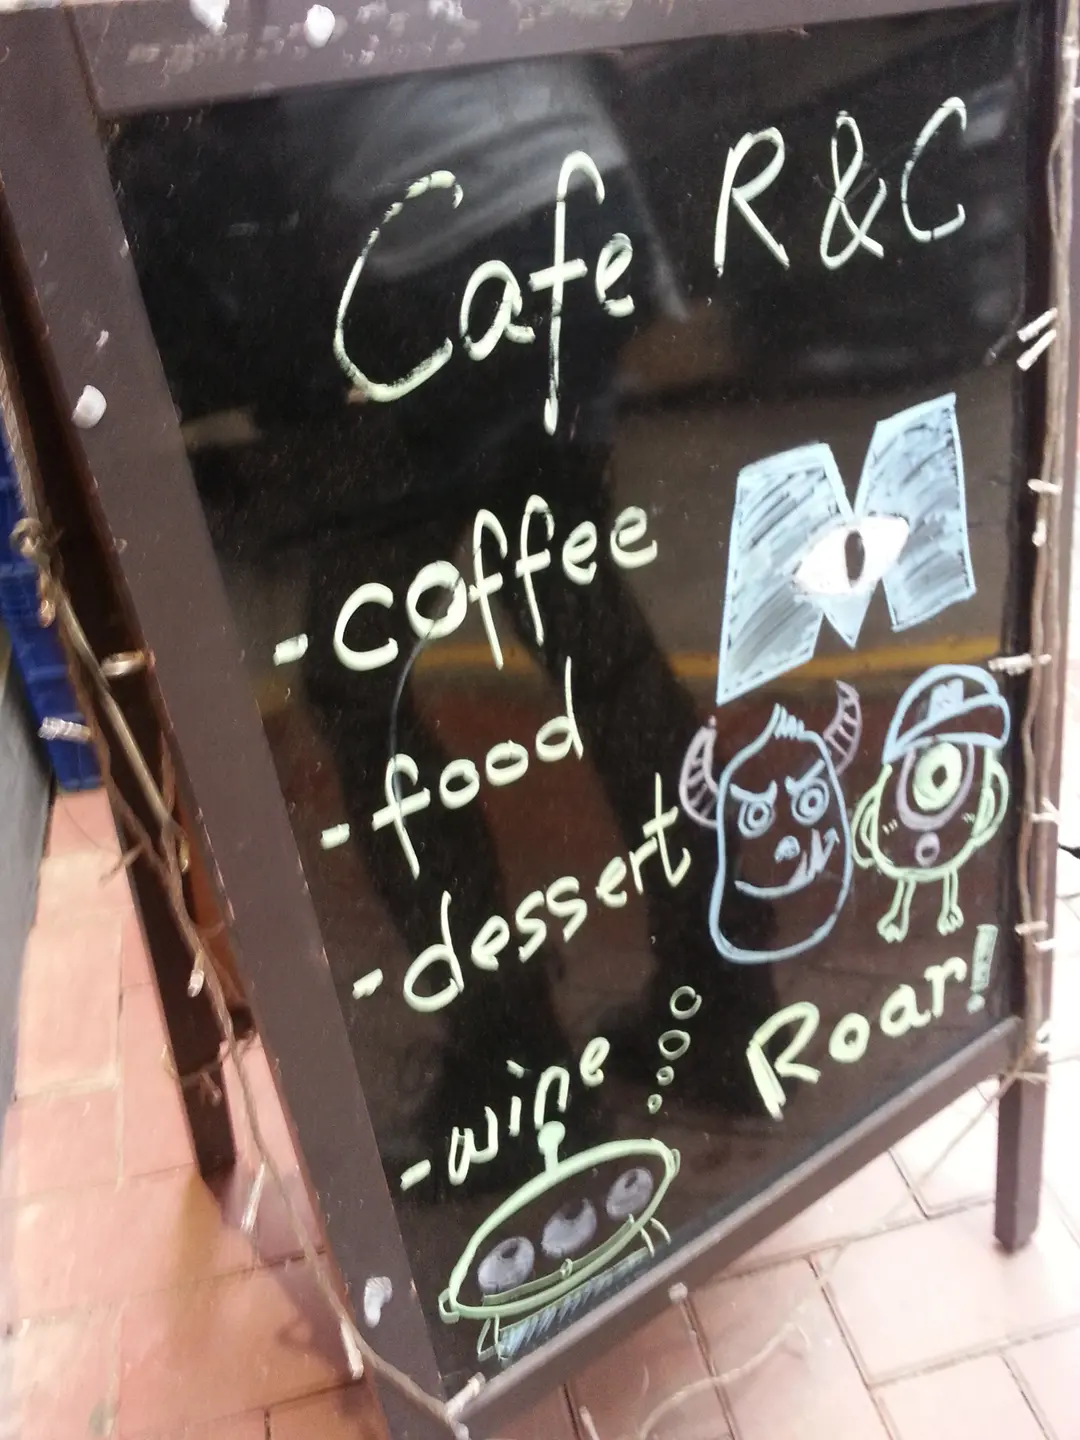 Cafe R&C
-coffee
-food
-dessert
-wine
M
Roar!